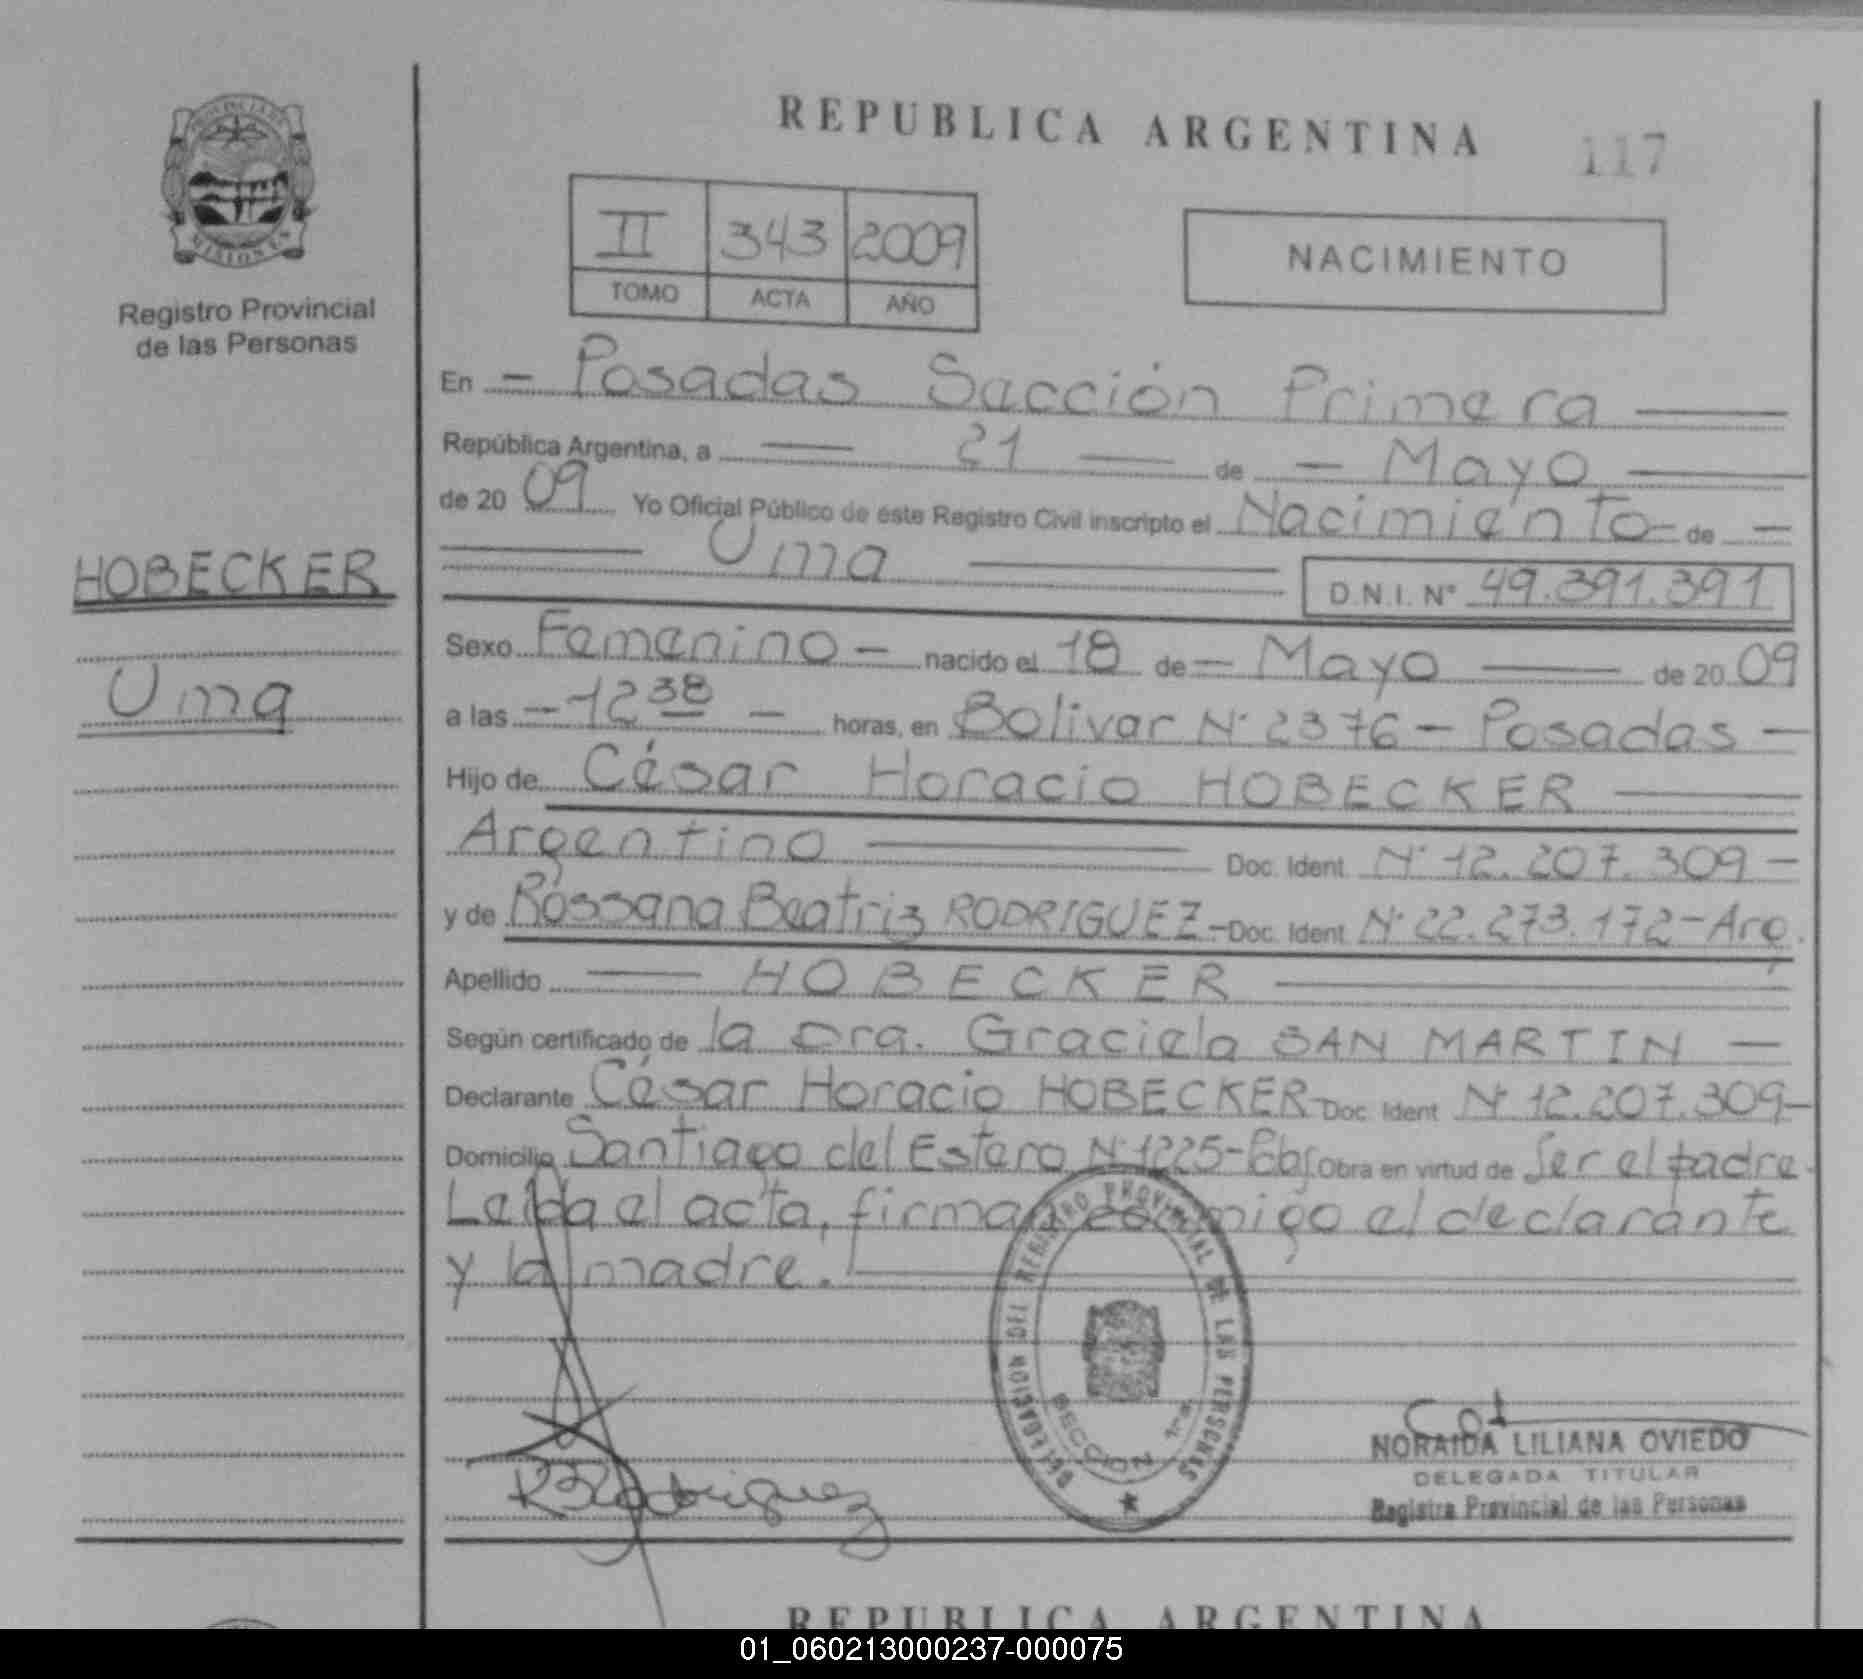 REPUBLICA ARGENTINA
117
PROVINCIA DE
MISIONES
Registro Provincial
de las Personas
II 343 2009
TOMO ACTA AÑO
NACIMIENTO
En - Posadas Sección Primera
República Argentina, a 21 de - Mayo
de 20 09 Yo Oficial Público de este Registro Civil inscripto el Nacimiento - de -
Uma D.N.I. Nº 49.391.391
HOBECKER
Uma
Sexo Femenino - nacido el 18 de - Mayo de 20 09
a las - 12 38 - horas, en Bolivar Nº 2376 - Posadas -
Hijo de César Horacio HOBECKER
Argentino Doc. Ident. Nº 12.207.309 -
y de Rossana Beatriz RODRIGUEZ - Doc. Ident Nº 22.273.172 - Arg.
Apellido HOBECKER
Según certificado de la Dra. Graciela SAN MARTIN -
Declarante César Horacio HOBECKER - Doc. Ident Nº 12.207.309 -
Domicilio Santiago del Estero Nº 1225 - Obra en virtud de Ser el padre.
Leída el acta, firman conmigo el declarante
y la madre.
DELEGACION DEL REGISTRO PROVINCIAL DE LAS PERSONAS
SECCION 1ra.
R Rodriguez
NORAIDA LILIANA OVIEDO
DELEGADA TITULAR
Registro Provincial de las Personas
REPUBLICA ARGENTINA
01_060213000237-000075